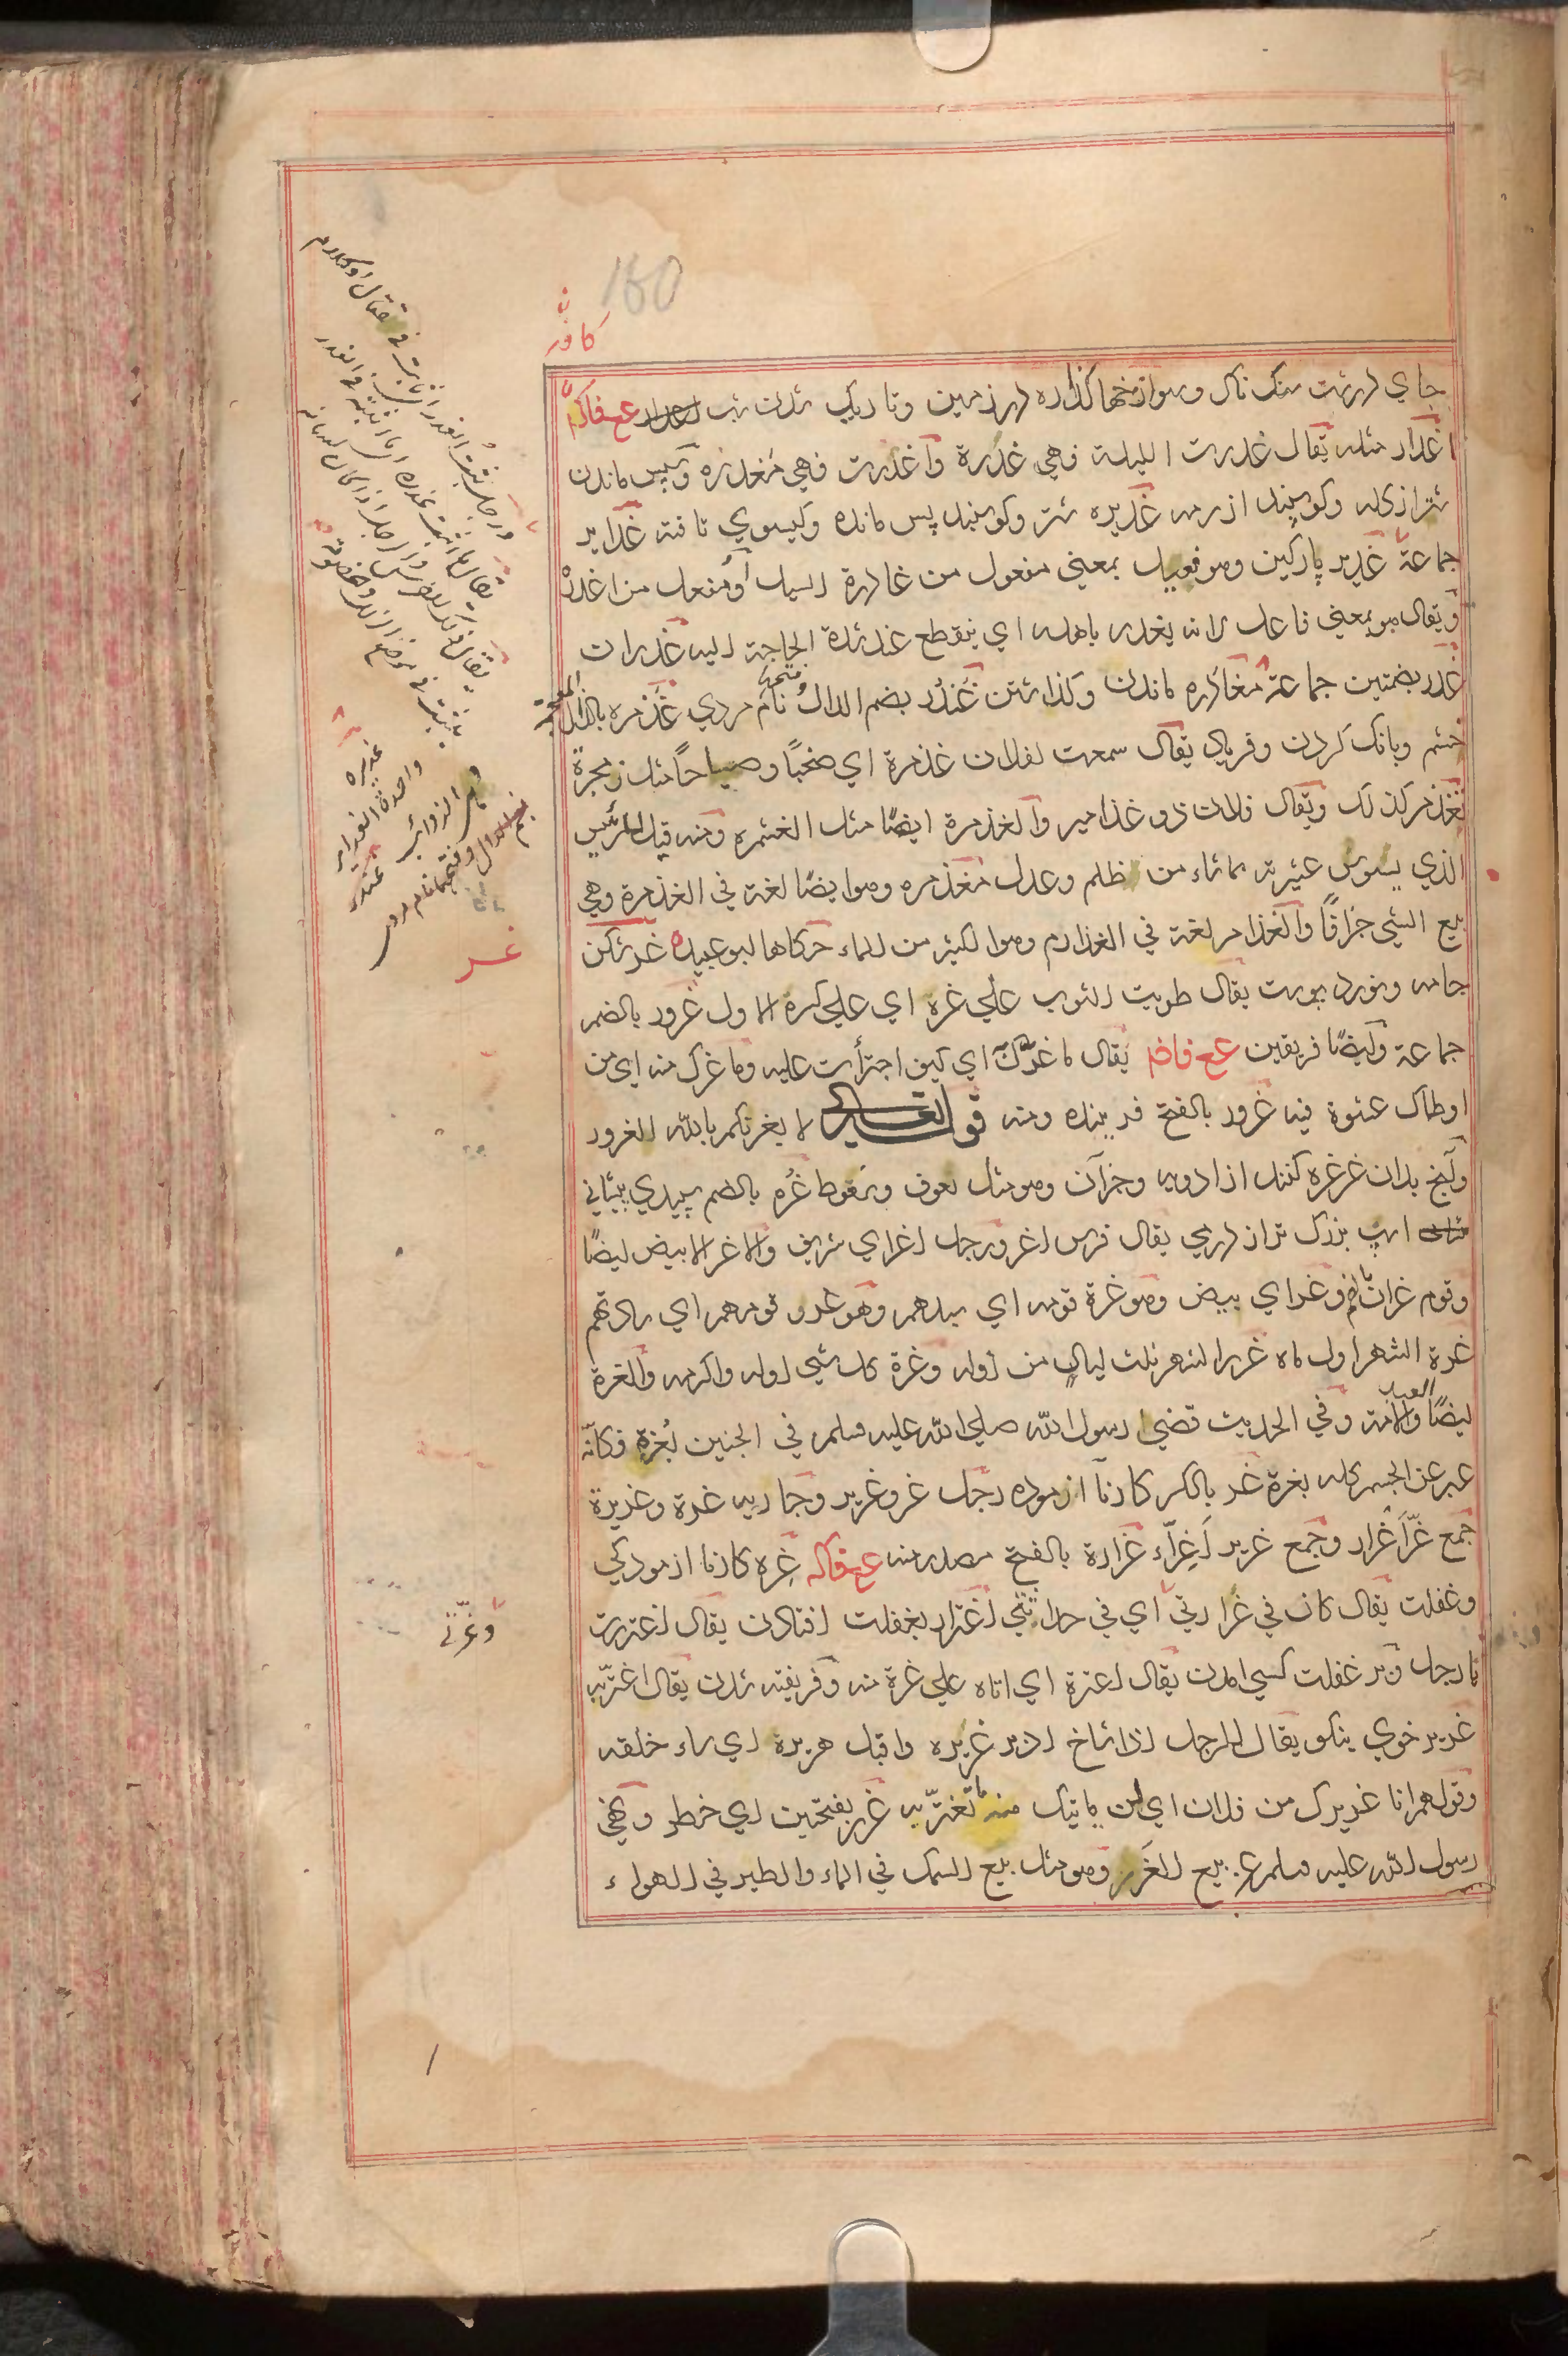 160
جاي درشت سنگ ناك وسوراخها كذارده در زمين وتاريك شدن شب عح فاكم
اغدار مثله يقال غدرت الليلة فهي غدرة وأغدرت فهي مغدره وسپس ماندن
شتر از كله وكوسپند از رمه غديره شتر وكوسپند پس مانده وكيسوي تافته غداير
جماعة غدير پاركين وهو فعيل بمعني مفعول من غادرة السيل أو مفعل من اغدره
ويقال هو بمعني فاعل لانه يغدر باهله اي ينقطع عند شدة الحاجة اليه غدرات
غدر بضمتين جماعة مغادره ماندن وكذاشتن غندر بضم الدال وفتحها نام مردي غذمره بالذال المعجمة
خشم وبانك كردن وفرياد يقال سمعت لفلان غذمرة اي صخبًا وصياحًا مثل زمجرة
تغذمر كذلك ويقال فلان ذو غذامير والغذمرة ايضًا مثل الغشمره ومنه قيل للرئيس
الذي يسوس عشيرته بما شاء من ظلم وعدل مغذمره وهو ايضًا لغة في الغذمرة وهي
بيع الشي جزافًا والغذامر لغة في الغذارم وهو الكثير من الماء حكاها ابو عبيده غر شكن
جامه ونورد پوست يقال طويت الثوب علي غره اي علي كسره الاول غرور بالضم
جماعة وايضًا فريفتن عح فاضم يقال ما غرّك اي كيف اجترأت عليه وما غرك منه اي من
اوطاك عشوة فيه غرور بالفتح فريبنده ومنه قوله تعالي لا يغرنكم بالله الغرور
وآنج بدان غرغره كنند از ادويه وجز آن وهو مثل لعوق وسعوط غره بالضم سپيدي پيشاني
اسپ بزرك تر از درمي يقال فرس اغر ورجل اغر اي شريف والاغر الابيض ايضًا
وقوم غران وغر اي بيض وهو غرة قومه اي سيدهم وهو غرر قومهم اي سادتهم
غرة الشهر اول ماه غرر الشهر ثلث ليالٍ من اوله وغرة كل شي اوله واكرمه والغرة
العبد
ايضًا والامة وفي الحديث قضي رسول الله صلي الله عليه وسلم في الجنين بغرة فكانّه
عبر عن الجسم كله بغرة غر بالكسر كار نا ازموده رجل غر وغرير وجاريه غرة وغريرة
جمع غرّ أغرار وجمع غرير أغرّاء غرارة بالفتح مصدر منه عح فاكه غره كار نا ازمودكي
وغفلت يقال كان في غرارتي اي في حداثتي اغترار بغفلت افتادن يقال اغتررت
يا رجل وبر غفلت كسي امدن يقال اغتره اي اتاه علي غرة منه وفريفته شدن يقال اغترّ به
غرير خوي نيكو يقال للرجل اذا شاخ ادبر غريره واقبل هريرة اي ساء خلقه
وقولهم انا غريرك من فلان اي لن ياتيك منه ما تغترّ به غرر بفتحتين اي خطر ونهي
رسول الله عليه وسلم عن بيع الغرر وهو مثل بيع السمك في الماء والطير في الهواء
ورجل ثبت الغدر اذا ثابت في قتال او كلام
غديره
واحدة الغداير
وهي الذوائب غندر
بضم الدال وفتحها نام مردي
غر
وغرّني